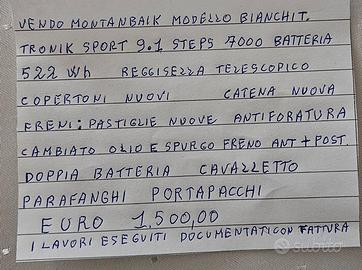 VENDO MONTANBAIK MODELLO BIANCHI T.
TRONIK SPORT 9.1 STEPS 7000 BATTERIA
522 Wh REGGISELLA TELESCOPICO
COPERTONI NUOVI CATENA NUOVA
FRENI: PASTIGLIE NUOVE ANTIFORATURA
CAMBIATO OLIO E SPURGO FRENO ANT + POST.
DOPPIA BATTERIA CAVALLETTO
PARAFANGHI PORTAPACCHI
EURO 1.500,00
I LAVORI ESEGUITI DOCUMENTATI CON FATTURA
subito